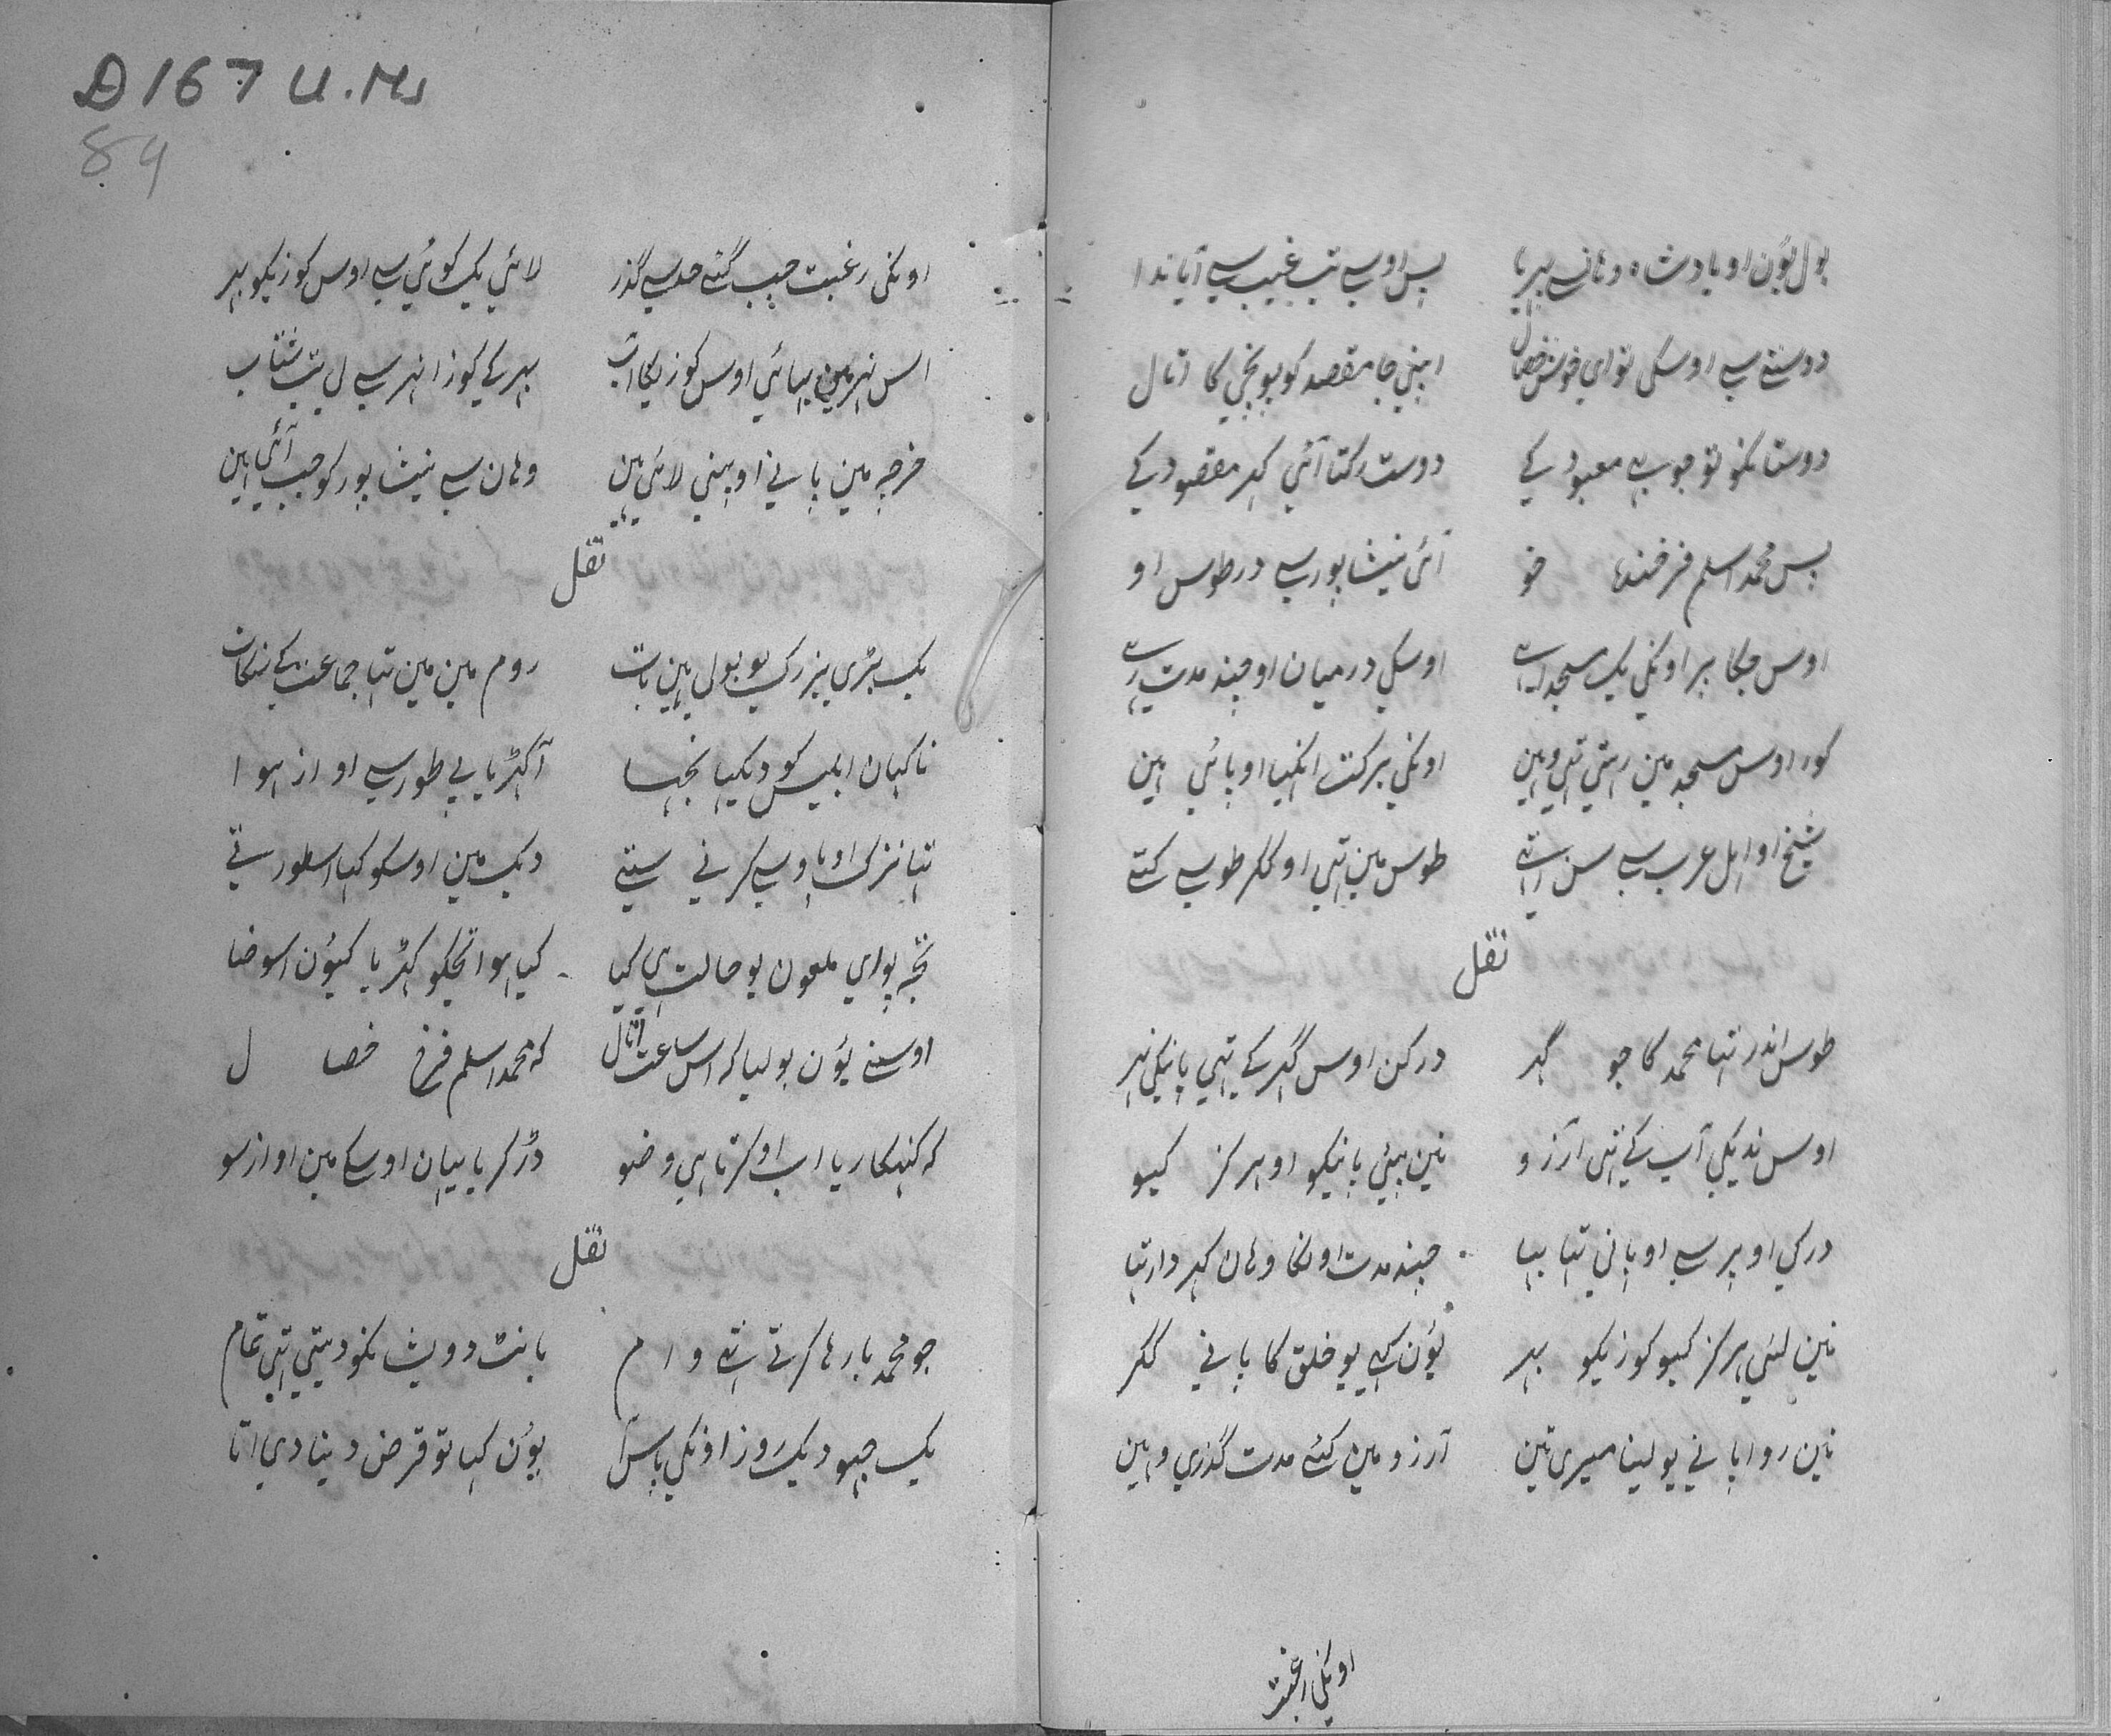 بول یوں او بادشاہ وہاں سے پہریا پس اوسے تب غیب سے آیا ندا
دوستے سے اوسکی تو ای خوش خصال اپنی جا مقصد کو پونچی کا اتال
دوستانکو تو جوہے معبود کے دوست رکتا آئی کہر مقصود کے
پس محمد اسلم فرخندہ خو آئی نیشاپور سے در طوس او
اوس جکا پر اونکی یک مسجد اہے اوسکی درمیان او چند مدت رہے
کوہ اوس مسجد میں رہتی تہی وہین اونکی برکت انکہیا او پائی ہین
شیخ او اہل عرب سے سن اہتے طوس مین تہی او ککر طوسے کتے
نقل
طوس اندر تہا محمد کا جو گہر در کن اوس گہر کے تہی پانیکی نہر
اوس ندیکی آب کے تہی آرزو نین پئی پانیکو او ہرگز کبو
درکی اوپر سے او پانی تہا بہا چند مدت اونکا وہان کہر دار تہا
نین لئی ہرگز کبو کوزیکو بہر یوں کہے یو خلق کا پانی ککر
نین روا پانی یو لینا میری تین آرزو مین کئے مدت گذری وہین
اونکی رغبت
D 167 U.Ms
89
اونکی رغبت جب گئے حد سے گذر لائی یک کوئی سے اوس کوزیکو بہر
اس نہر مین بہائی اوس کوزیکا آب بہر کے کوزا نہر سے لے تب شتاب
خرچہ مین پانی او اپنی لائی ہین وہان سے نیشاپور کو جب آئی ہین
نقل
یک بڑی بزرگ یو بولی ہین بات روم مین مین تہا جماعت کے سنکات
ناکہان ابلیس کو دیکہیا بجہا آ کہڑیا پے طور سے او از ہوا
تہا نزک او پاوسے کرنے ستے دیک مین اوسکو کہا اسطور تے
تجہ پو ای ملعون یو حالت ہی کیا کیا ہوا تجکو کہڑیا کیوں اس وضا
اوسنے یوں بولیا کہ اس ساعت اتال کہ محمد اسلم فرخ خصال
کہ کنہکاریا اب او کرتا ہی وضو ڈر کریا بیان اوسکا مین او از سو
نقل
جو محمد بارہا کرتے اتہے وام بانٹ درویشانکو دیتی تہی تمام
یک جہود یک روز اونکی پاس آ یوں کہا تو قرض دینا دی اتا